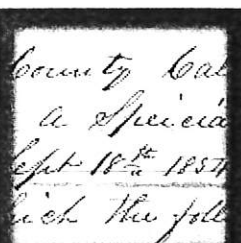 County Cal
a Speicia
ept 18th 1854
ich the foll